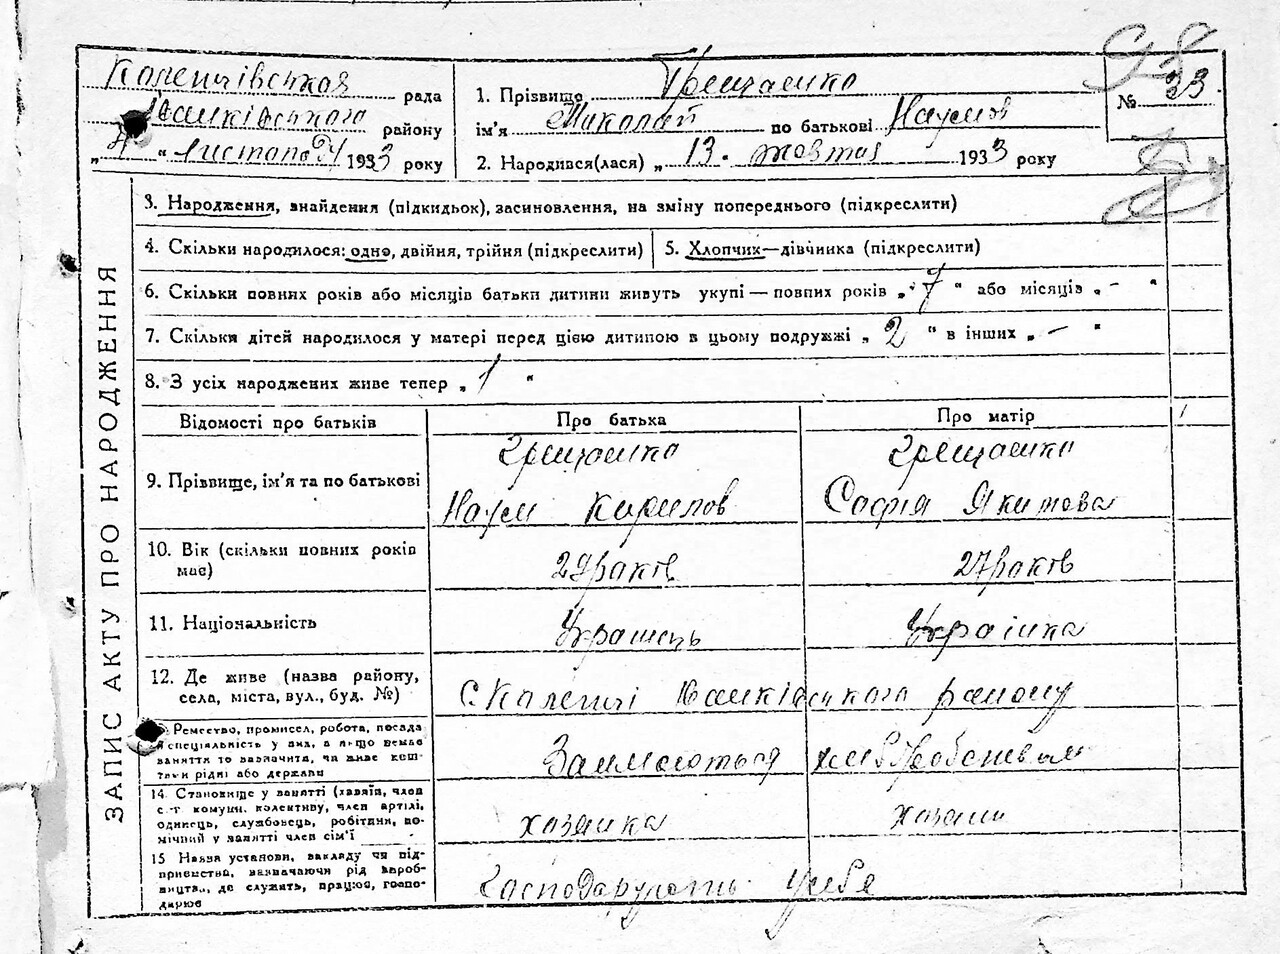 98
Коленцівська рада
Іванківського району
„4“ листопаду 1933 року
1. Прізвище Грищенко
ім'я Миколай по батькові Наумов
2. Народився(лася) „13. жовтня 1933 року
№ 33
ЗАПИС АКТУ ПРО НАРОДЖЕННЯ
3. Народження, знайдення (підкидьок), засиновлення, на зміну попереднього (підкреслити)
4. Скільки народилося: одно, двійня, трійня (підкреслити)
5. Хлопчик—дівчинка (підкреслити)
6. Скільки повних років або місяців батьки дитини живуть укупі — повних років „7“ або місяців „-“
7. Скільки дітей народилося у матері перед цією дитиною в цьому подружжі „2“ в інших „—“
8. З усіх народжених живе тепер „1“
Відомості про батьків
Про батька
Про матір
9. Прізвище, ім'я та по батькові
Грищенко
Наум Кирилов
Грищенко
Софія Якимова
10. Вік (скільки повних років
має)
29 років
27 років
11. Національність
Українець
Українка
12. Де живе (назва району,
села, міста, вул., буд. №)
с. Коленці Іванківського району
Ремество, промисел, робота, посада
і спеціяльність у них, а якщо немає
заняття то зазначити, чи живе кош-
тами рідні або держави
Займаються хліборобством
14. Становище у занятті (хазяїн, член
с.-г. комуни, колективу, член артілі,
одинець, службовець, робітник, по-
мічний у занятті член сім'ї
хозяика
хозаин
15 Назва установи, закладу чи під-
приємства, зазначаючи рід вироб-
ництва, де служить, працює, госпо-
дарює
Господарують у себе